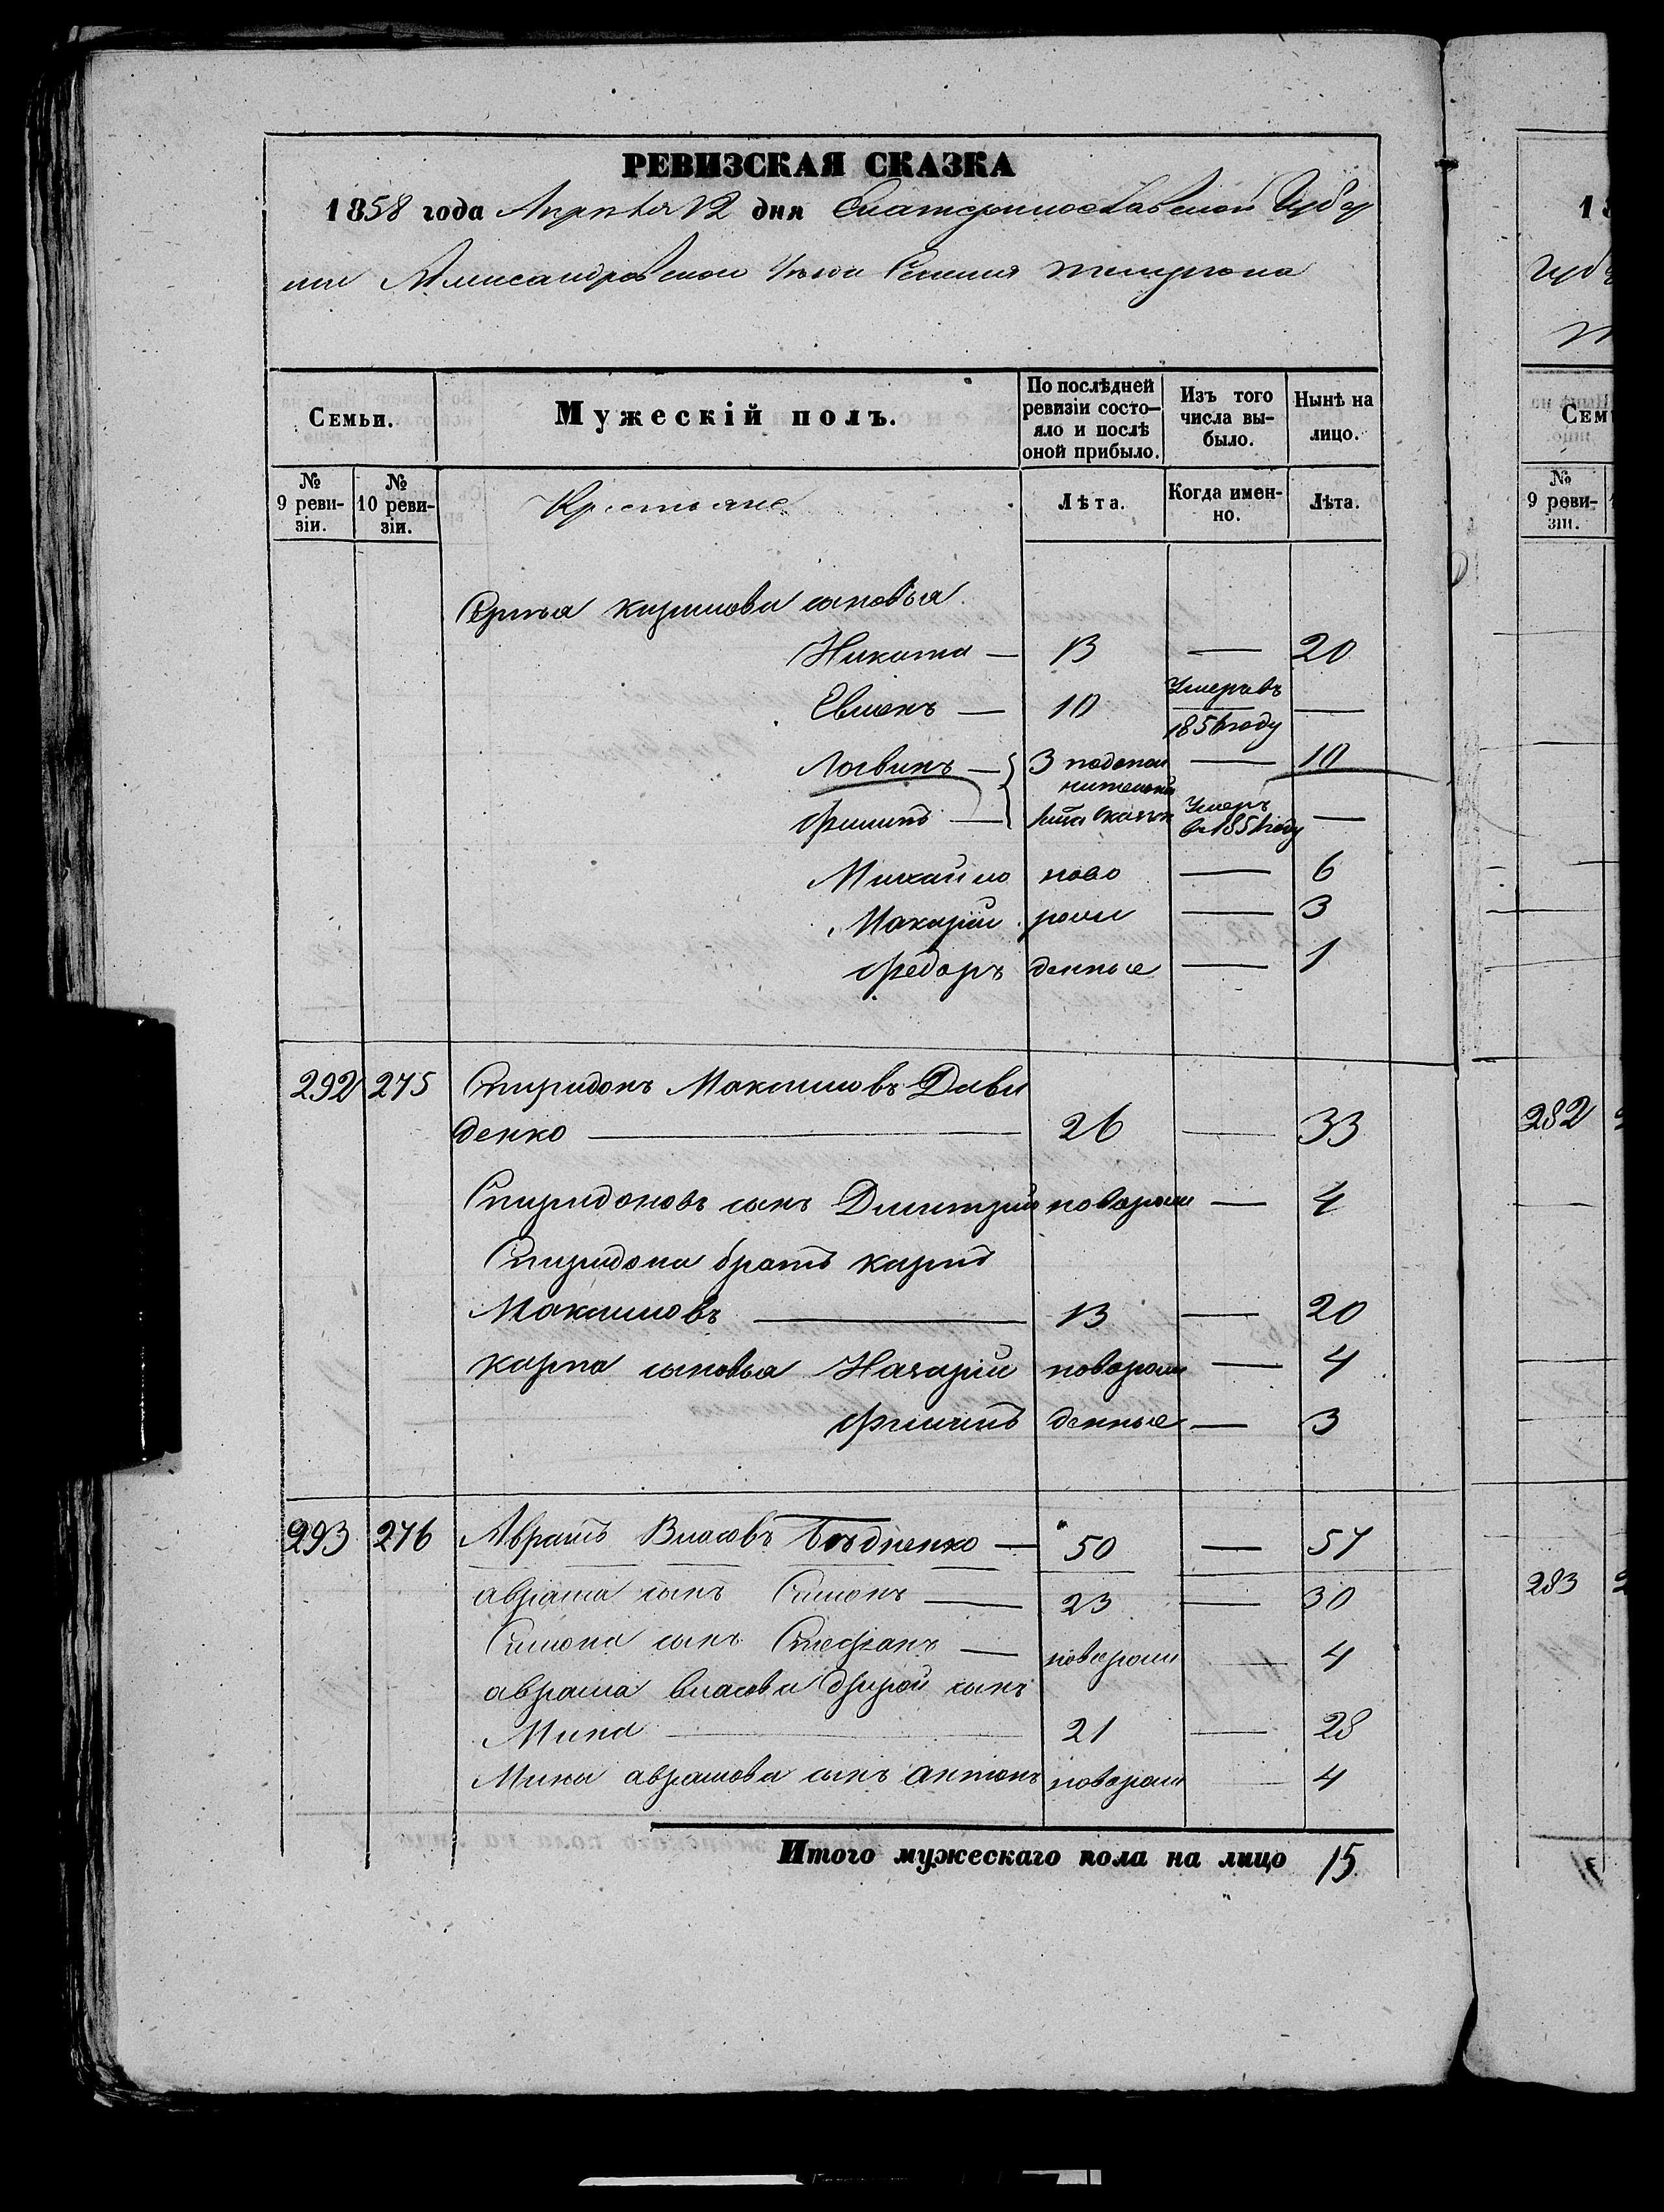 РЕВИЗСКАЯ СКАЗКА
1858 года Апрѣля 12 дня Екатеринославской Губер
нии Александровскаго Уѣзда Селения
Семьи. Мужескій полъ. По послѣдней ревизіи состояло и послѣ оной прибыло. Изъ того числа выбыло. Нынѣ на лицо.
№ 9 ревизіи. № 10 ревизіи. Крестьяне Лѣта. Когда именно. Лѣта.
Сергѣя Кирилова сыновья
Никита — 13 — 20
Евменъ — 10 Умеръ въ 1856 году —
Логвинъ — 3 — 10
Филипъ — Умеръ въ 1851 году —
Михайло ново — 6
Макарій рож — 3
Федоръ денные — 1
292 275 Спиридонъ Максимовъ Дави
денко — 26 — 33
Спиридоновъ сынъ Дмитрий новорож — 4
Спиридона братъ Карпъ
Максимовъ — 13 — 20
Карпа сыновья Назарій новорож — 4
Филипъ денные — 3
293 276 Аврамъ Власовъ Бѣдненко — 50 — 57
Аврама сынъ Симонъ — 23 — 30
Симона сынъ Стефанъ — новорож — 4
Аврама Власова другой сынъ
Мина — 21 — 28
Мины Аврамова сынъ Антонъ новорож — 4
Итого мужескаго пола на лицо 15
Семь
№ 9 ревизіи.
282
283